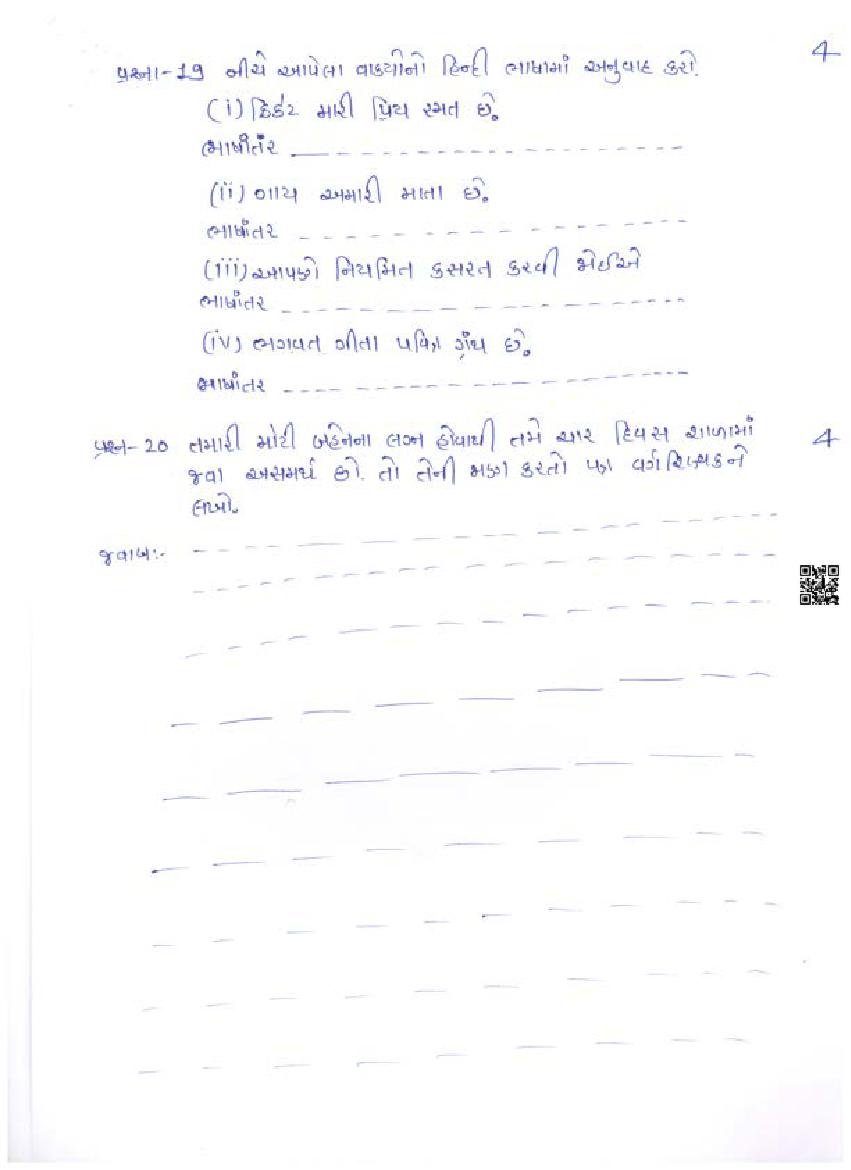 4
પ્રશ્ના-19 નીચે આપેલા વાક્યોનો હિન્દી ભાષામાં અનુવાદ કરો.
(i) ક્રિકેટ મારી પ્રિય રમત છે.
ભાષાંતર
(ii) ગાય અમારી માતા છે.
ભાષાંતર
(iii) આપણે નિયમિત કસરત કરવી જોઈએ
ભાષાંતર
(iv) ભગવત ગીતા પવિત્ર ગ્રંથ છે.
ભાષાંતર
પ્રશ્ન-20 તમારી મોટી બહેનના લગ્ન હોવાથી તમે ચાર દિવસ શાળામાં 4
જવા અસમર્થ છો. તો તેની જાણ કરતો પત્ર વર્ગશિક્ષકને
લખો.
જવાબ:-